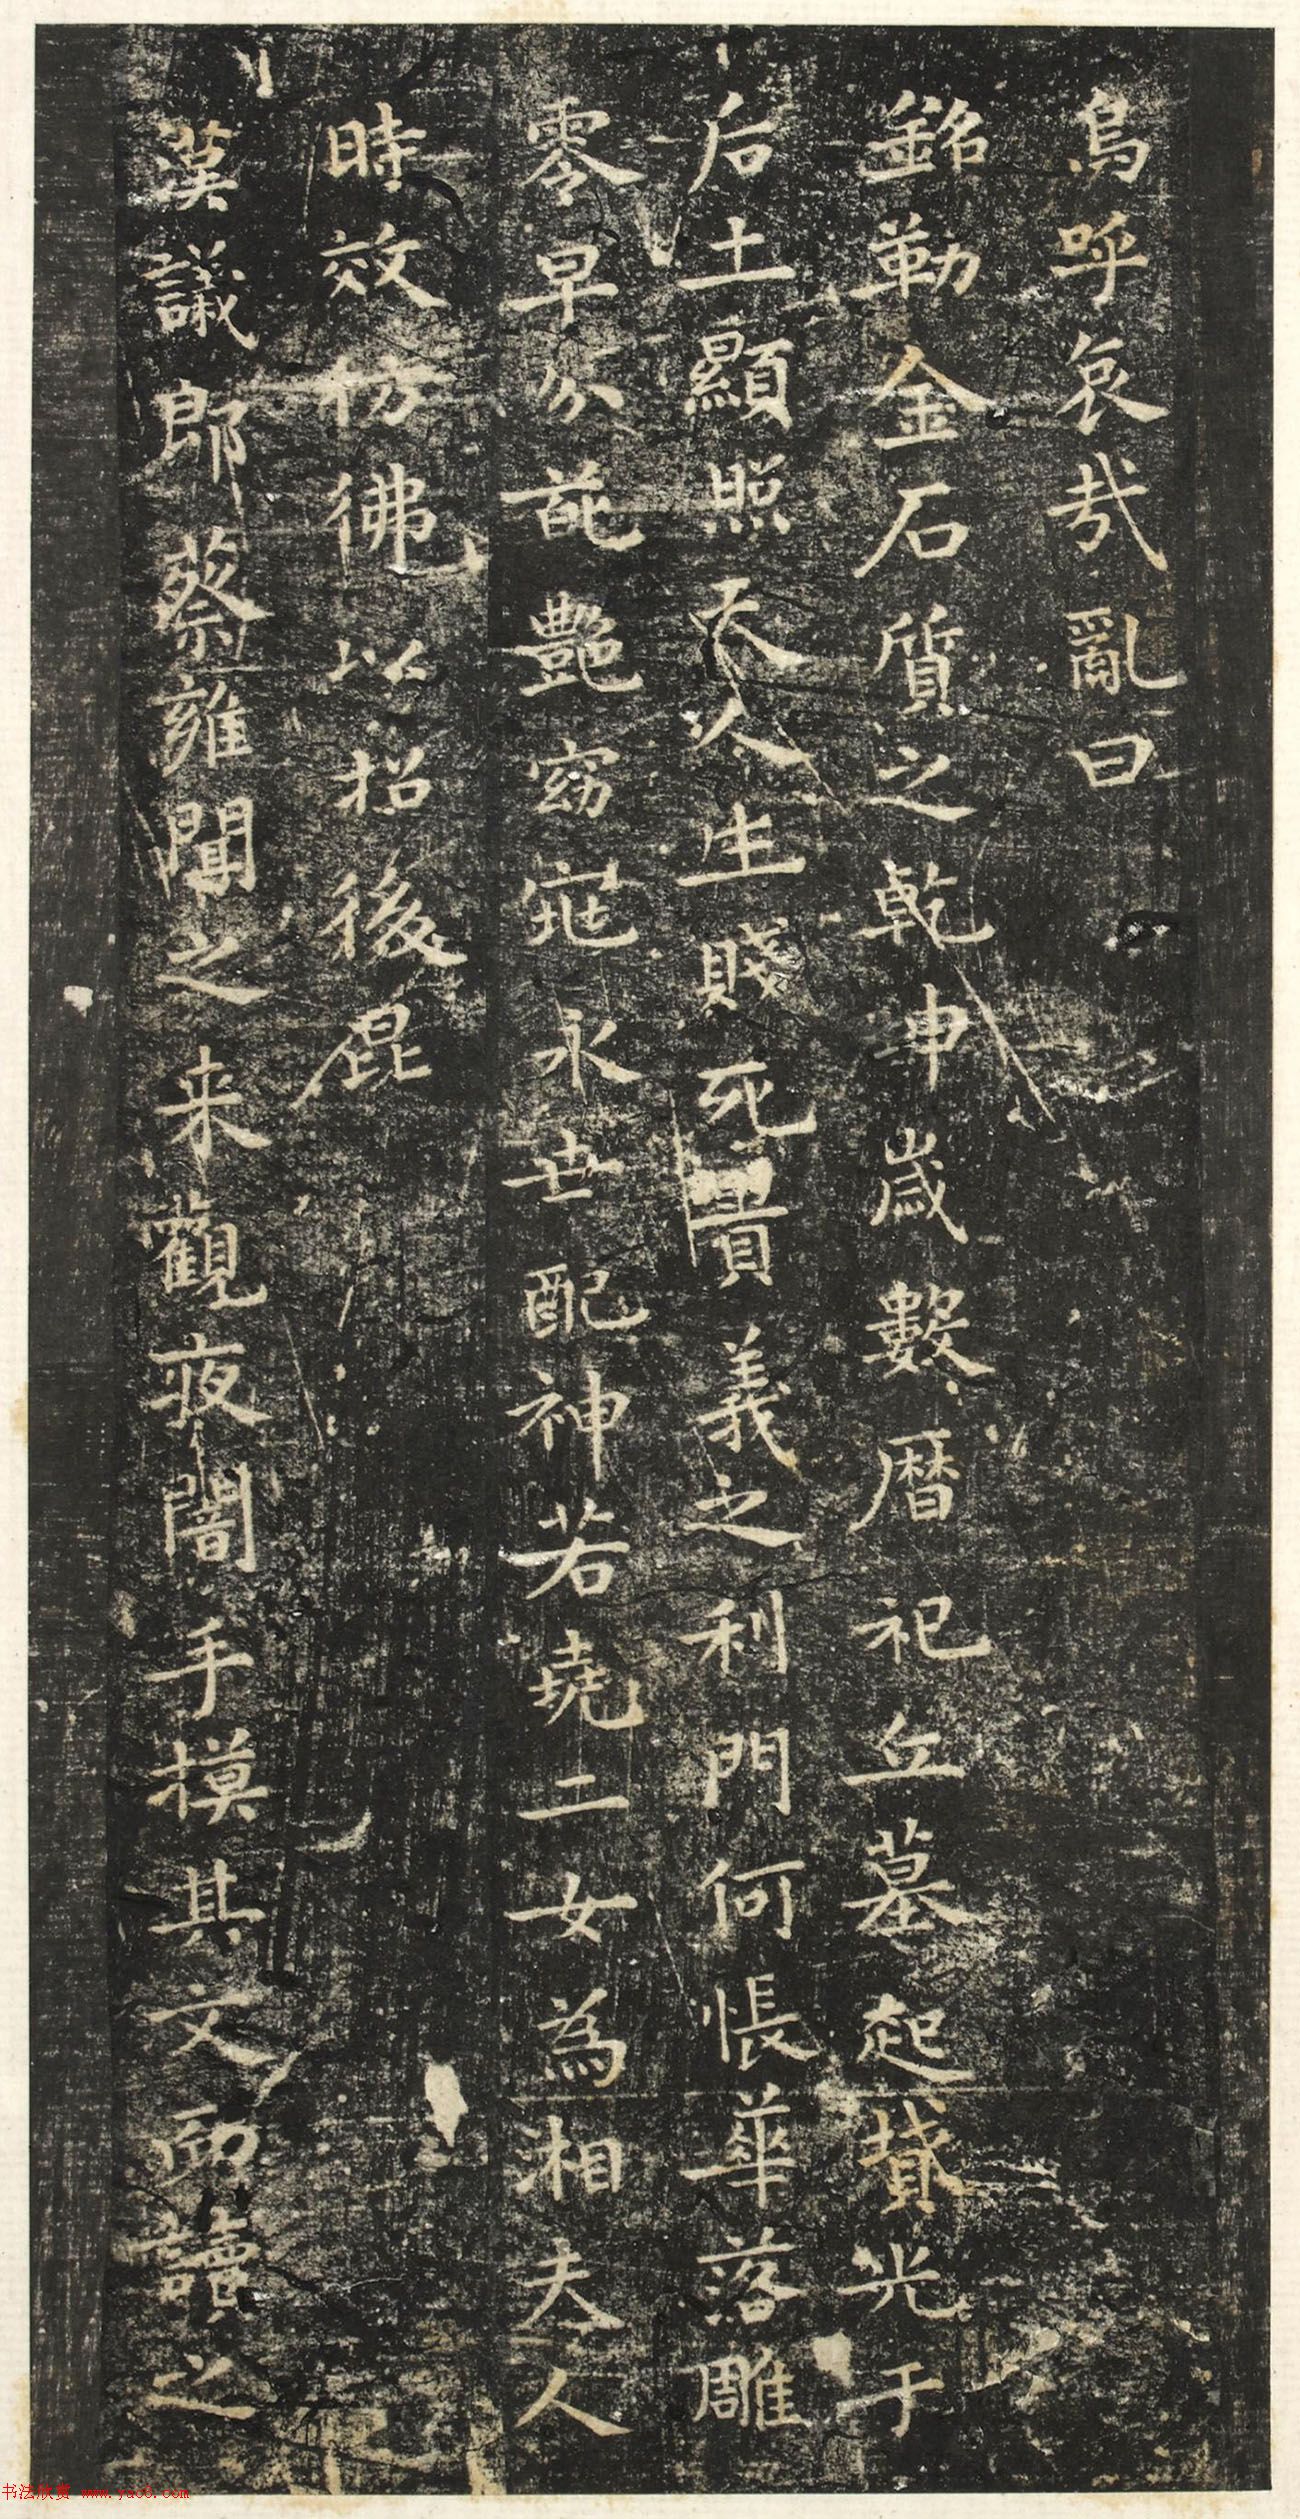 烏呼哀哉亂曰
銘勒金石質之乾申歲數曆祀丘墓起墳光于
后土顯照天人生賤死貴義之利門何悵華落雕
零早分葩艷窈窕永世配神若堯二女為湘夫人
時效彷彿以招後昆
漢議郎蔡雍聞之来觀夜闇手摸其文而讀之
书法欣赏 www.yac8.com